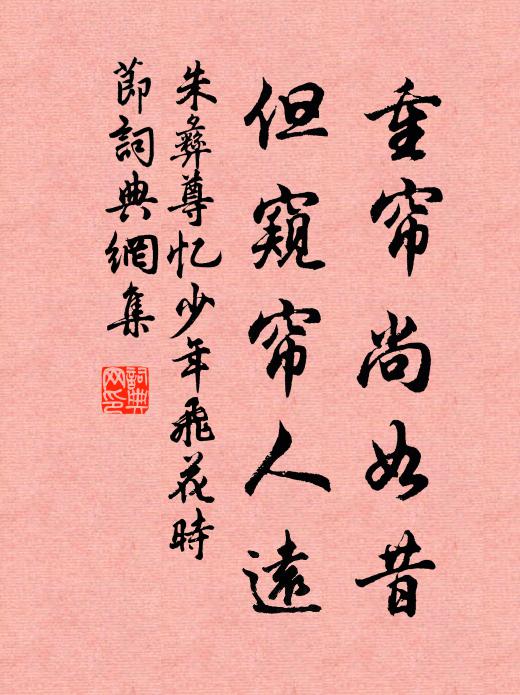 重帘尚如昔
但窥帘人遠
朱彝尊忆少年飛花時
節詞典網集
詞典網印